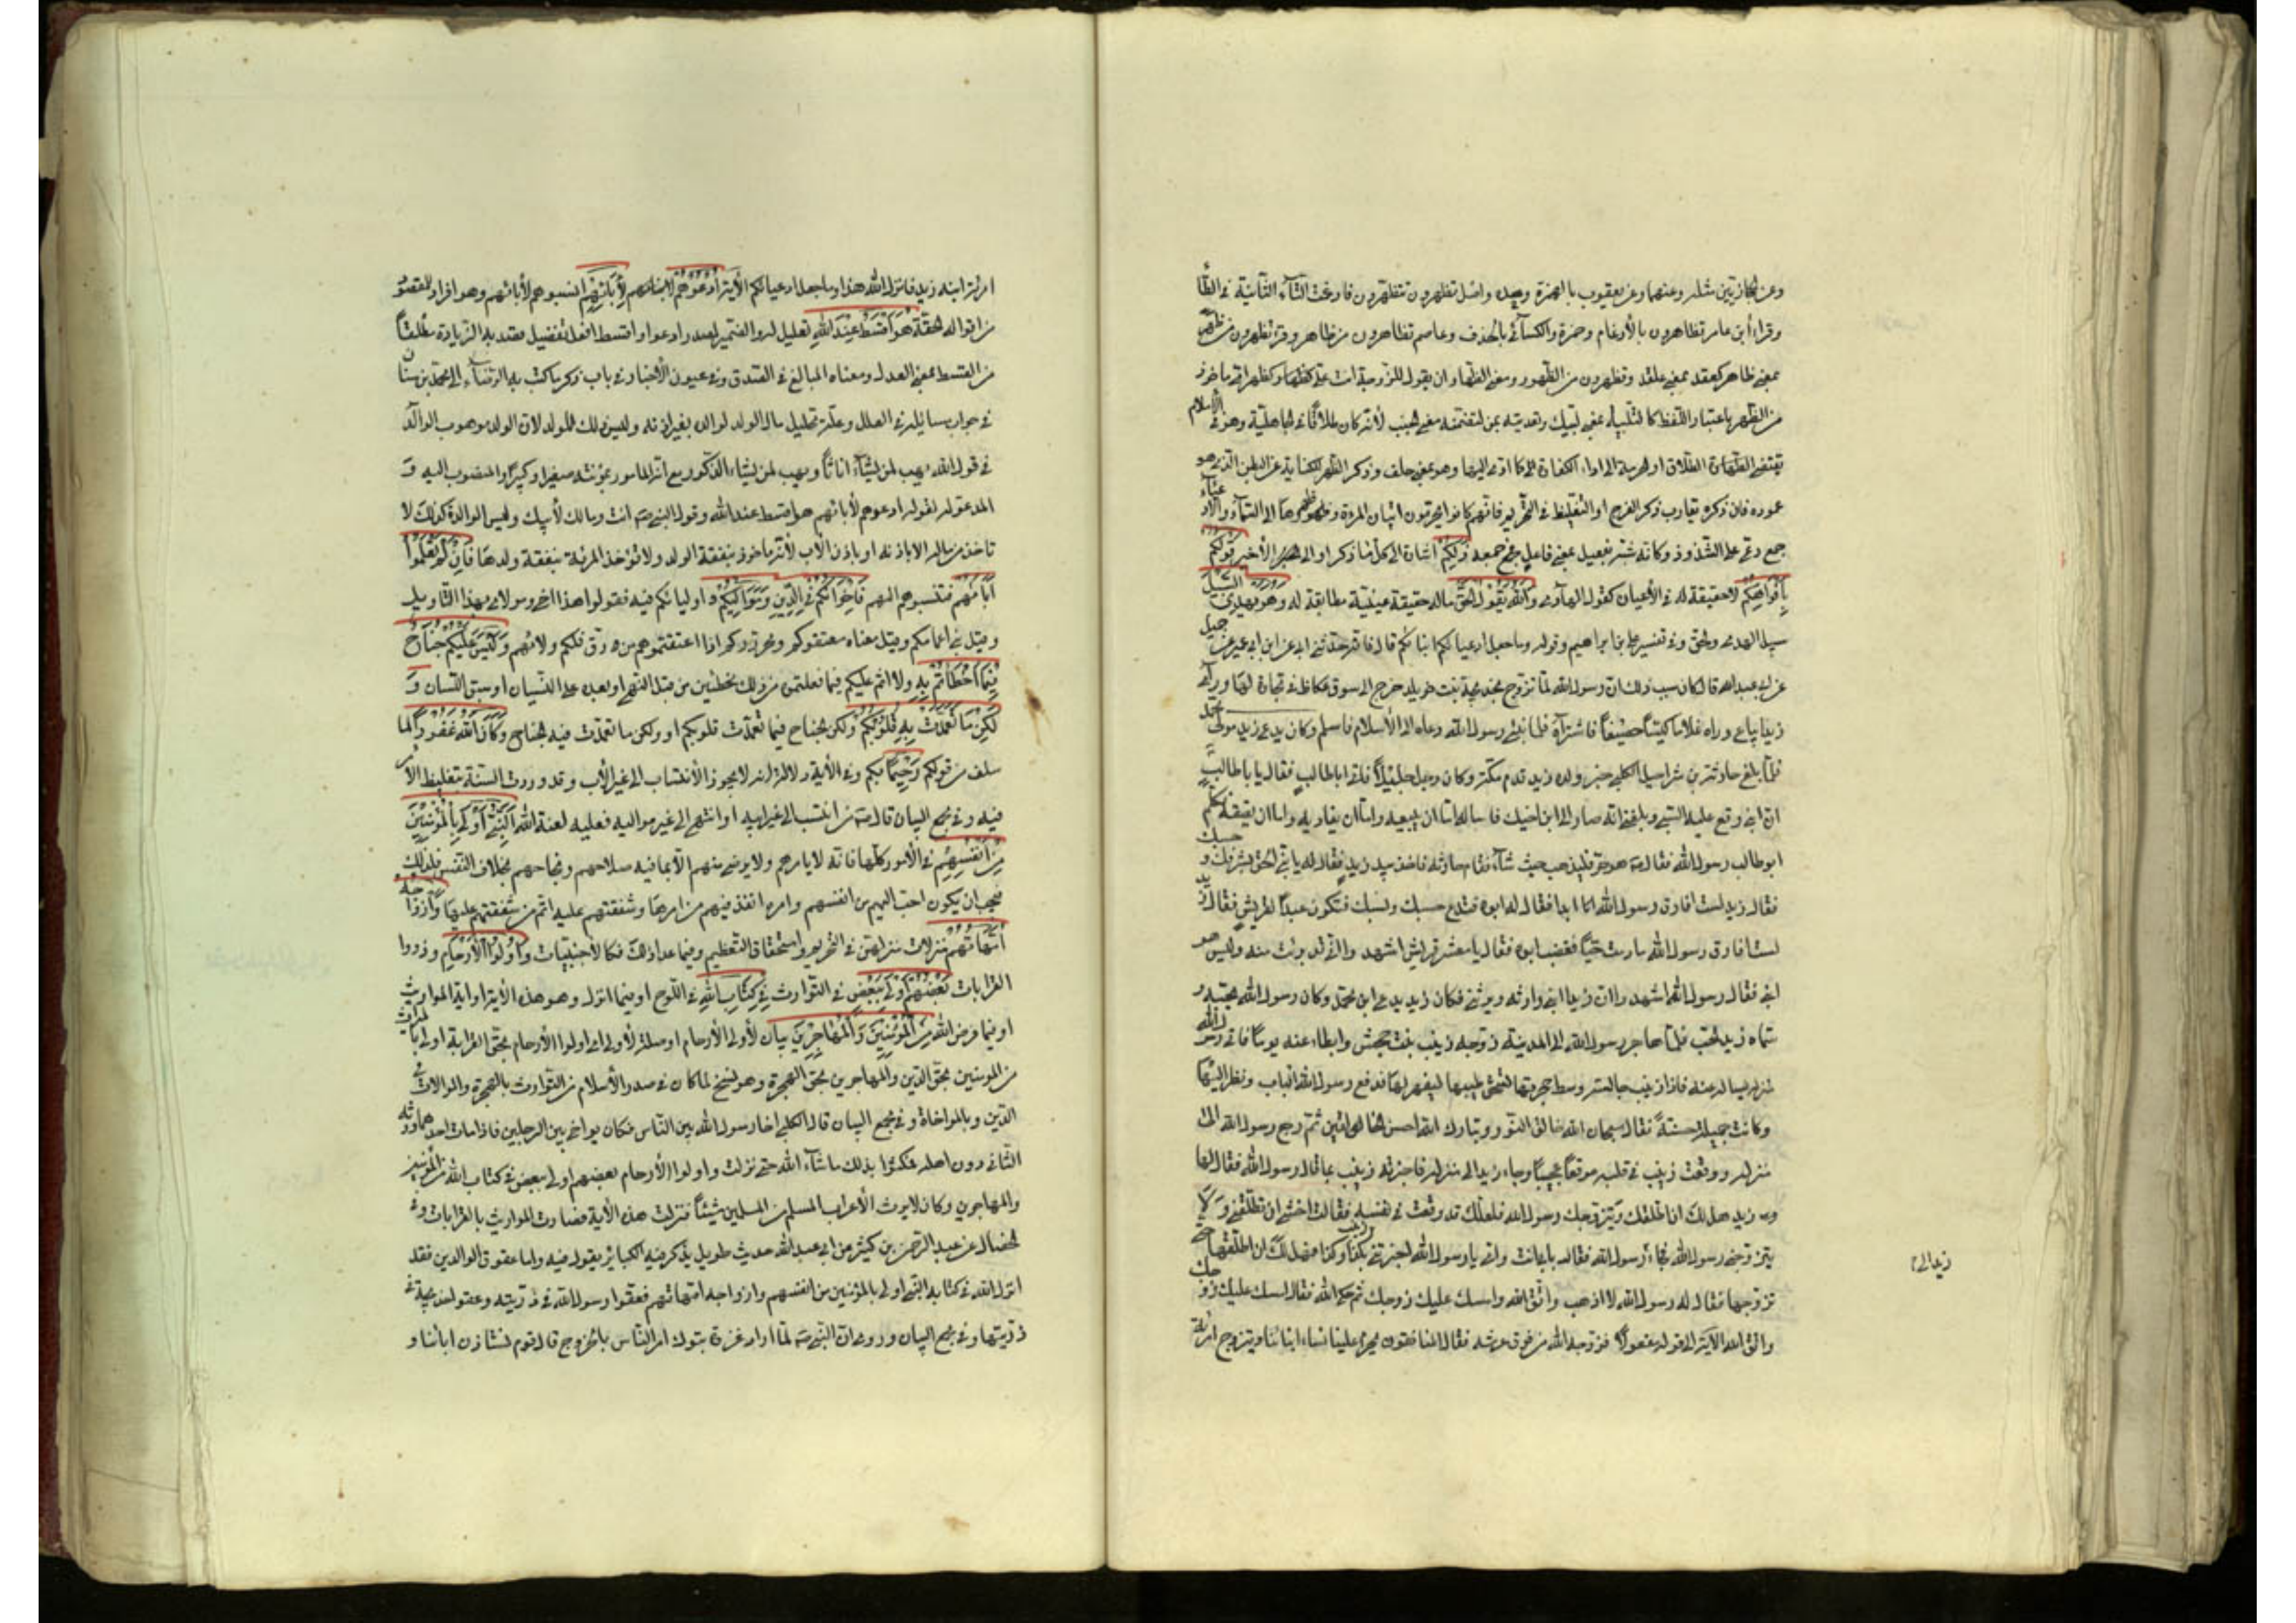 وعن الحجازيين مثله وعنهما وعن يعقوب بالهمزة وحده واصل تظهرون تتظهرون فادغمت التآء الثانية في الظآء
وقراء ابن عامر تظاهرون بالأدغام وحمزة والكسائي بالحذف وعاصم تظاهرون من ظاهر وقرئ تظهرون من ظهر
بمعنى ظاهر كعقد بمعنى عاقد وتظهرون من الظهور ومعنى الظهار ان يقول للزوجة انت علي كظهر امي ماخوذ
من الظهر باعتبار اللفظ كالتلبية بمعنى لبيك وتعديته بمن لتضمنه معنى تجنب لأنه كان طلاقًا في الجاهلية وهو في الأسلام
يقتضي الطلاق او الحرمة الى اداء الكفارة كما عدي اليها وهو بمعنى حلف وذكر الظهر للكناية عن البطن الذي هو
عموده فان ذكره يقارب ذكر الفرج او التغليظ في التحريم فانهم كانوا يحرمون اتيان المرءة وظهرها الى السمآء والأدعيآء
جمع دعي على الشذوذ وكانه شبه بفعيل بمعنى فاعل فجمع جمعه ذلكم اشارة الى كل ما ذكر او الى الأخير قولكم
بافواهكم لا حقيقة له في الأعيان كقول الهاذي والله يقول الحق ماله حقيقة عينية مطابقة له وهو يهدي السبيل
سبيل الهدى والحق وفي تفسير علي بن ابراهيم وقوله وما جعل ادعياءكم ابناءكم قال فانه حدثني ابي عن ابن ابي عمير عن جميل
عن ابي عبد الله قال كان سبب ذلك ان رسول الله لما تزوج بخديجة بنت خويلد خرج الى سوق عكاظ في تجارة لها ورأى
زيدا يباع وراه غلاما كيسًا حصيفًا فاشتراه فلما نبئ رسول الله دعاه الى الأسلام فاسلم وكان يدعى زيد مولى محمد
فلما بلغ حارثة بن شراحيل الكلبي خبر ولده زيد قدم مكة وكان رجلا جليلاً فاتى ابا طالب فقال يا ابا طالب
ان ابني وقع عليه السبي وبلغني انه صار الى ابن اخيك فاساله اما ان يبيعه واما ان يفاديه واما ان يعتقه فكلم
ابو طالب رسول الله فقال هو حر فليذهب حيث شآء فقام حارثة فاخذ بيد زيد فقال له يا بني الحق بشرفك وحسبك
فقال زيد لست افارق رسول الله ابدا فقال له ابوه فتدع حسبك ونسبك فتكون عبدًا لقريش فقال زيد
لست افارق رسول الله ما دمت حيًّا فغضب ابوه فقال يا معشر قريش اشهدوا اني قد برئت منه وليس هو
ابني فقال رسول الله اشهدوا ان زيدا ابني وارثه ويرثني فكان زيد يدعى ابن محمد وكان رسول الله يحبه و
سماه زيد الحب فلما هاجر رسول الله الى المدينة زوجه زينب بنت جحش وابطاء عنه يومًا فاتى رسول الله
منزله يساله عنه فاذا زينب جالسة وسط حجرتها تسحق طيبها بفهر لها فدفع رسول الله الباب ونظر اليها
وكانت جميلة حسنة فقال سبحان الله خالق النور وتبارك الله احسن الخالقين ثم رجع رسول الله الى
منزله ووقعت زينب في قلبه موقعًا عجيبًا وجاء زيد الى منزله فاخبرته زينب بما قال رسول الله فقال لها
زيد هل لك ان اطلقك ويتزوجك رسول الله فلعلك قد وقعت في نفسه فقالت اخشى ان تطلقني ولا
يتزوجني رسول الله فجاء رسول الله فقال بابي انت وامي يا رسول الله اخبرتني زينب بكذا وكذا فهل لك ان اطلقها حتى
تزوجها فقال له رسول الله لا اذهب واتق الله وامسك عليك زوجك ثم حكى الله فقال امسك عليك زوجك
واتق الله الآية الى قوله مفعولًا فزوجه الله من فوق عرشه فقال المنافقون يحرم علينا نساء ابنائنا ويتزوج امرأة
زيد الى
امرأة ابنه زيد فانزل الله هذا وما جعل ادعياءكم الآية ادعوهم لأبائهم انسبوهم لأبائهم وهو افراد للمقصود
من اقواله الحقة هو اقسط عند الله تعليل له والضمير لمصدر ادعوا واقسط افعل تفضيل قصد به الزيادة مطلقًا
من القسط بمعنى العدل ومعناه البالغ في الصدق وفي عيون الأخبار في باب ذكر ما كتب به الرضآء الى محمد بن سنان
في جواب مسايله في العلل وعلة تحليل مال الولد لوالده بغير اذنه وليس ذلك للولد لان الولد موهوب الوالد
في قول الله يهب لمن يشآء اناثًا ويهب لمن يشاء الذكور مع انه الماخوذ بمؤنته صغيرا وكبيرًا والمنسوب اليه و
المدعو له لقوله ادعوهم لأبائهم هو اقسط عند الله وقول النبي انت ومالك لأبيك وليس الوالدة كذلك لا
تاخذ من ماله الا باذنه او باذن الأب لأنه ماخوذ بنفقة الولد ولا تؤخذ المرئة بنفقة ولدها فان لم تعلموا
آبآءهم فتنسبوهم اليهم فاخوانكم في الدين ومواليكم واولياءكم فيه فقولوا هذا اخي ومولاي بهذا التاويل
وقيل بني اعمامكم وقيل معناه معتقوكم ومحرروكم اذا اعتقتموهم من رق فلكم ولاءهم وليس عليكم جناح
فيما اخطأتم به ولا اثم عليكم فيما فعلتموه من ذلك مخطئين من قبل النهي او بعده على النسيان او سبق اللسان و
لكن ما تعمدت به قلوبكم ولكن الجناح فيما تعمدت قلوبكم او ولكن ما تعمدت فيه الجناح وكان الله غفورًا لما
سلف من قولكم رحيمًا بكم وفي الأية دلالة انه لا يجوز الأنتساب الى غير الأب وقد وردت السنة بتغليظ الأمر
فيه وفي مجمع البيان قال من انتسب الى غير ابيه او انتهى الى غير مواليه فعليه لعنة الله النبي اولى بالمؤمنين
من انفسهم في الأمور كلها فانه لا يامرهم ولا يرضى منهم الا بما فيه صلاحهم ونجاحهم بخلاف النفس فلذلك
فيجب ان يكون احب اليهم من انفسهم وامره انفذ فيهم من امرها وشفقتهم عليه اتم من شفقتهم عليها وازواجه
امهاتهم منزلات منزلتهن في التحريم واستحقاق التعظيم وفيما عدا ذلك فكالأجنبيات واولوا الأرحام وذووا
القرابات بعضهم اولى ببعض في التوارث في كتاب الله في اللوح او فيما انزل وهو هذه الأية او اية المواريث
او فيما فرض الله من المؤمنين والمهاجرين بيان لأولي الأرحام او صلة لأولى اي اولوا الأرحام بحق القرابة اولى بالميراث
من المؤمنين بحق الدين والمهاجرين بحق الهجرة وهو نسخ لما كان في صدر الأسلام من التوارث بالهجرة والموالات في
الدين وبالمواخاة وفي مجمع البيان قال الكلبي اخا رسول الله بين الناس فكان يواخي بين الرجلين فاذا مات احدهما ورثه
الثاني دون اهله فمكثوا بذلك ما شآء الله حتى نزلت واولوا الأرحام بعضهم اولى ببعض في كتاب الله من المؤمنين
والمهاجرين وكان لا يرث الأعرابي المسلم من المسلمين شيئًا فنزلت هذه الأية فصارت المواريث بالقرابات وفي
الخصال عن عبد الرحمن بن كثير عن ابي عبد الله حديث طويل يذكر فيه الكبائر يقول فيه واما عقوق الوالدين فقد
انزل الله في كتابه النبي اولى بالمؤمنين من انفسهم وازواجه امهاتهم فعقوا رسول الله في ذريته وعقوا خديجة في
ذريتها وفي مجمع البيان وروي ان النبي لما اراد غزوة تبوك امر الناس بالخروج قال قوم نستاذن ابائنا و